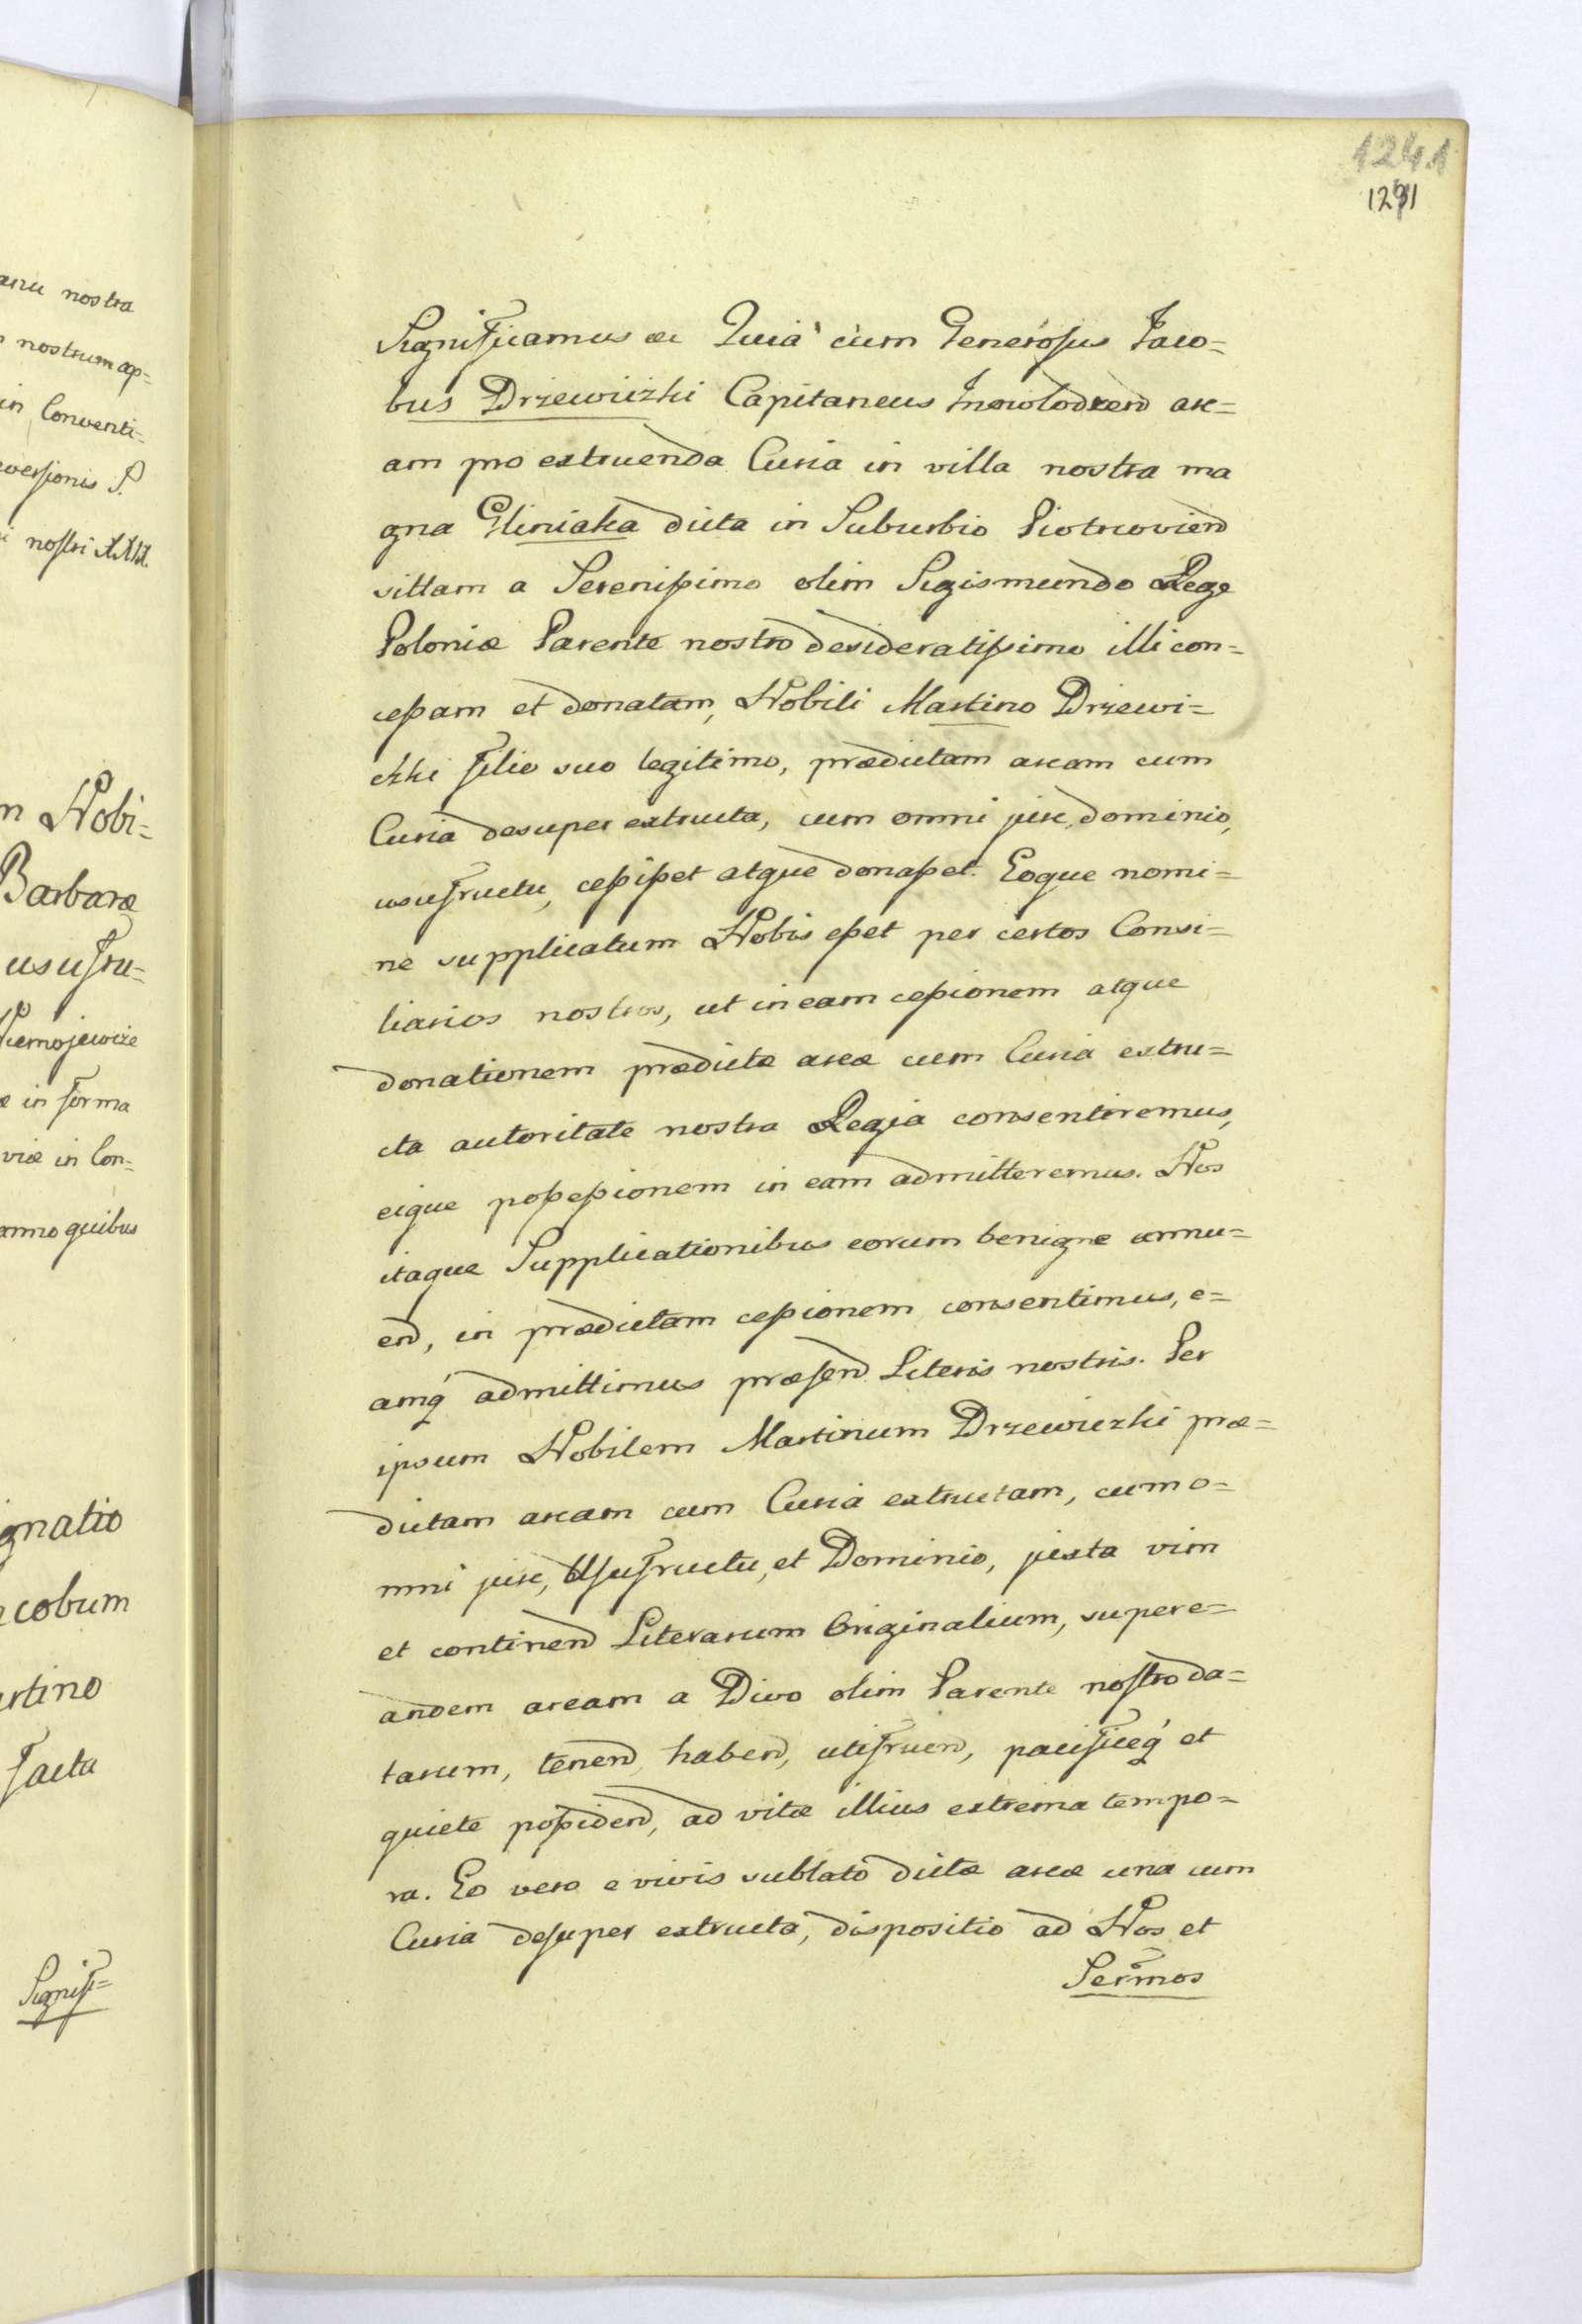 anu nostra
nostrum ap=
in Conventi=
versionis S.
nostri XXIX.
Nobi=
Barbaræ
usufru=
Niemojewicze
in forma
viæ in Con=
anno quibus
gnatio
acobum
artino
facta
Signifi=
1241
1291
Significamus &c Quia cum Generosus Jaco=
bus Drzewiczki Capitaneus Inowlodzen are=
am pro extruenda Curia in villa nostra ma
gna Gliniaka dicta in Suburbio Piotrcovien
sittam a Serenissimo olim Sigismundo Rege
Poloniæ Parente nostro desideratissimo illi con=
cessam et donatam, Nobili Martino Drzewi=
czki filio suo legitimo, prædictam aream cum
Curia desuper extructa, cum omni jure, dominio,
usufructu, cessisset atque donasset. Eoque nomi=
ne supplicatum Nobis esset per certos Consi=
liarios nostros, ut in eam cessionem atque
donationem prædictæ areæ cum Curia extru=
cta autoritate nostra Regia consentiremus,
eique possessionem in eam admitteremus. Nos
itaque Supplicationibus eorum benigne annu=
en, in prædictam cessionem consentimus, e=
amq́ admittimus præsen Literis nostris. Per
ipsum Nobilem Martinum Drzewiczki præ=
dictam aream cum Curia extructam, cum o=
mni jure, Usufructu, et Dominio, juxta vim
et continen Literarum Originalium, super e=
andem aream a Divo olim Parente nostro da=
tarum, tenen, haben, utifruen, pacificeq́ et
quiete possiden, ad vitæ illius extrema tempo=
ra. Eo vero e vivis sublato dictæ areæ una cum
Curia desuper extructa, dispositio ad Nos et
Sermos